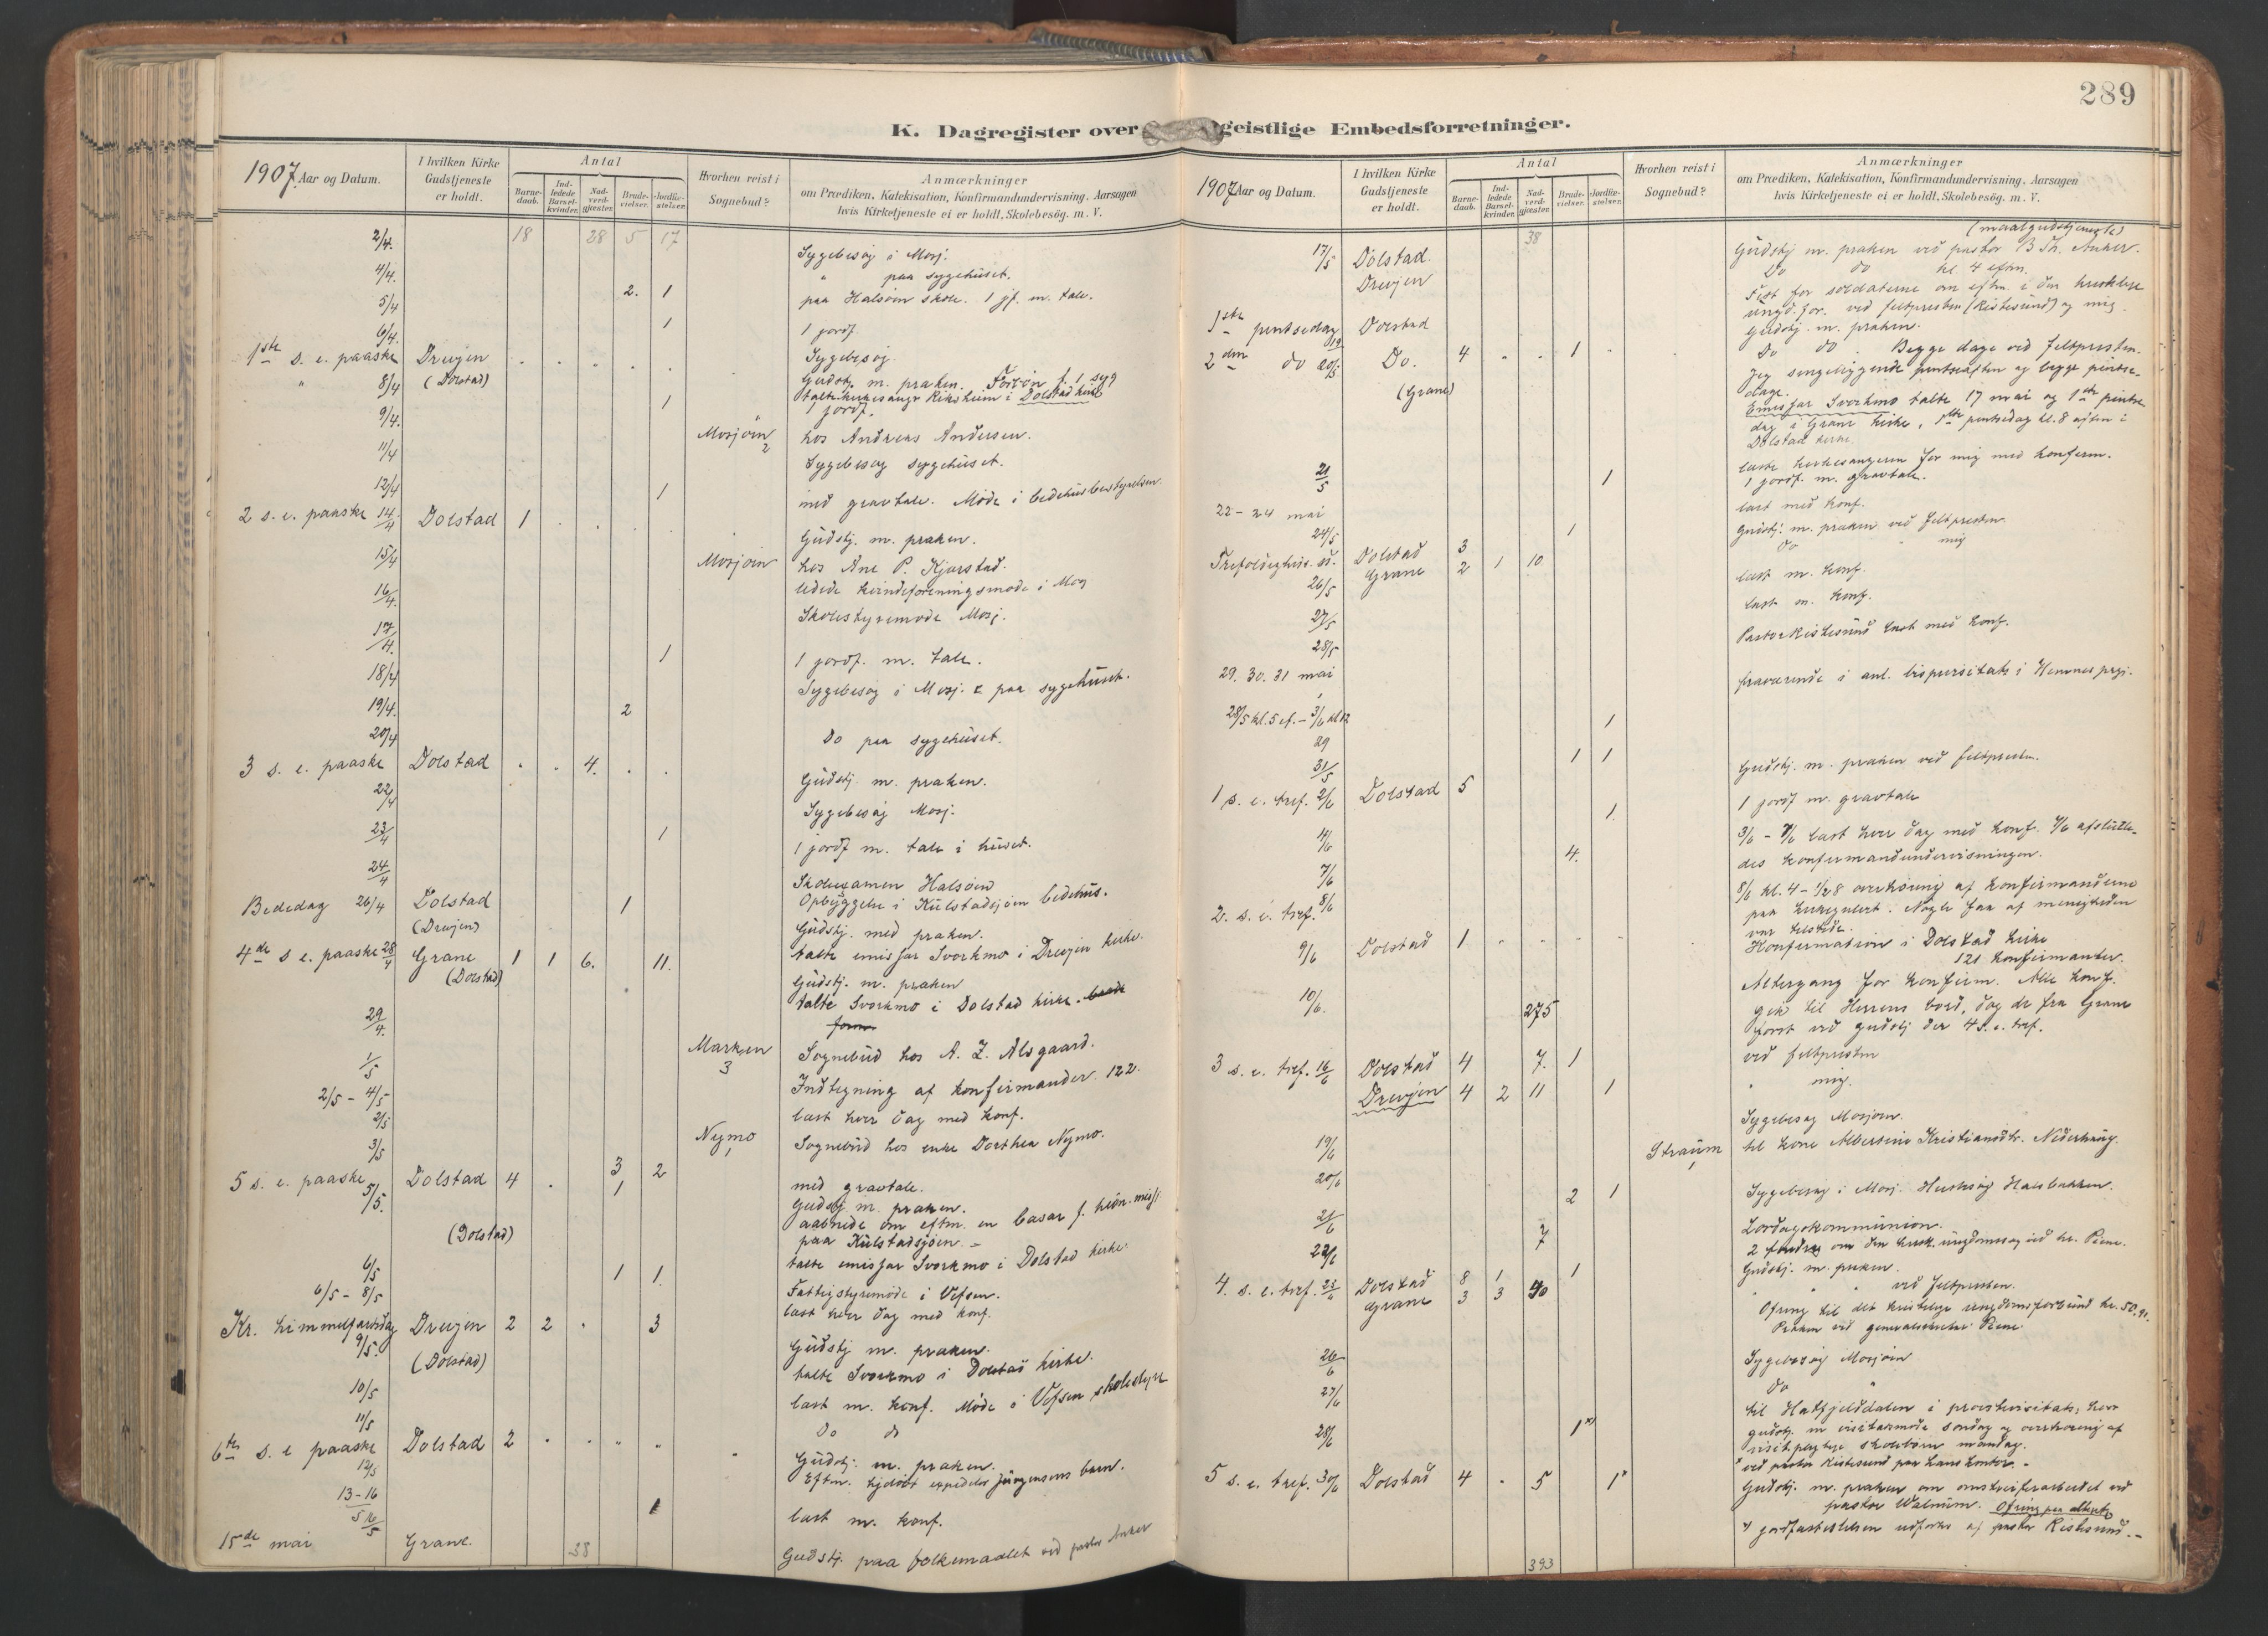 289
K. Dagregister over geistlige Embedsforretninger.
1907. Aar og Datum.
I hvilken Kirke Gudstjeneste er holdt.
Antal
Barne-daab.
Ind-ledede Barsel-kvinder.
Nad-verd-gjæster.
Brude-vielser.
Jordfæ-stelser.
Hvorhen reist i Sognebud?
Anmærkninger
om Prædiken, Katekisation, Konfirmandundervisning. Aarsagen
hvis Kirketjeneste ei er holdt, Skolebesøg. m. V.
18 28 5 17
2/4. Sygebesøg i Mosj.
4/4. " paa sygehuset.
5/4 2. 1 paa Halsøen skole. 1 jf. m. tale.
6/4. 1 1 jordf.
Sygebesøg.
1ste s. e. paaske Drevjen Gudstj. m. præken. Forbøn f. 1 syg
" (Dolstad) talte kirkesanger i Dolstad kirke
8/4 1 1 jordf.
9/4. Mosjøen 2 hos Andreas Andersen.
11/4 Sygebesøg sygehuset.
12/4 1 med gravtale. Møde i bedehusbestyrelsen.
2 s. e. paaske 14/4 Dolstad 1 Gudstj. m. præken.
15/4 Mosjøen hos Ane P. Kjærstad.
16/4. ledede kvindeforeningsmøde i Mosj
17/4. Skolestyremøde Mosj.
1 1 jordf. m. tale.
18/4 Sygebesøg i Mosj. & paa sygehuset.
19/4. 2
20/4 Do paa sygehuset.
3 s. e. paaske Dolstad 4. Gudstj. m. præken.
22/4 Sygebesøg Mosj.
23/4 1 1 jordf m. tale i huset.
24/4 Skoleexamen Halsøen
Opbyggelse i Kulstadsjøen bedehus.
Bededag 26/4 Dolstad 1 Gudstj. med præken.
(Drevjen) talte emissær Svorkmo i Drevjen kirke.
4de s e. paaske 28/4 Grane 1 1 6. 11. Gudstj. m. præken
(Dolstad) talte Svorkmo i Dolstad kirke.
29/4. Marken 3 Sognebud hos A. Z. Alsgaard.
1/5 Indtegning af konfirmander. 122.
2/5 - 4/5 læst hver dag med konf.
2/5 Nymo 1 Sognebud hos enke Dorthea Nymo.
3/5 3 2 med gravtale.
5 s. e. paaske 5/5. Dolstad 4 1 Gudstj. m. præken.
aabnede om eftm. en basar f. miss.
paa Kulstadsjøen. -
(Dolstad) talte emissær Svorkmo i Dolstad kirke.
6/5 1 1. Fattigstyremøde i Vefsen.
6/5 - 8/5 læst hver dag med konf.
Kr. himmelfartsdag 9/5. Drevjen 2 2 3 Gudstj m. præken.
(Dolstad) talte Svorkmo i Dolstad kirke.
10/5 læst m. konf. Møde i Vefsen skolestyre
11/5 Do do
6te s. e paaske 12/5 Dolstad 2 Gudstj. m. præken.
Eftm. hjdøbt expeditør Jürgensens barn.
13-16 5 læst m. konf.
16/5 1
15de mai Grane. Gudstj. paa folkemaalet ved pastor Anker
38
1907 Aar og Datum.
I hvilken Kirke Gudstjeneste er holdt.
Antal
Barne-daab.
Ind-ledede Barsel-kvinder.
Nad-verd-gjæster.
Brude-vielser.
Jordfæ-stelser.
Hvorhen reist i Sognebud?
Anmærkninger
om Prædiken, Katekisation, Konfirmandundervisning. Aarsagen
hvis Kirketjeneste ei er holdt, Skolebesøg. m. V.
38
(maalgudstjeneste)
17/5 Dolstad. Gudstj m. præken ved pastor B Th. Anker.
Drevjen Do do kl. 4 eftm.
Fest for soldaterne om eftm. i den kristelige
ungd. for. ved feltpresten (Ristesund) og mig.
1ste pintsedag 19 Dolstad gudstj. m. præken.
2den do 20/5 Do. 4 1 Do do. Begge dage ved feltpresten.
Jeg sengeliggende pintseaften og begge pintse-
dage.
(Grane) Emissær Svorkmo talte 17 mai og 1ste pintse
dag i Grane kirke, 1ste pintsedag kl. 8 aften i
Dolstad kirke.
læste kirkesangeren for mig med konfirm.
21/5 1 1 jordf. m. gravtale.
22 - 24 mai læst med konf.
24/5 1
Trefoldighets. sd. 26/5 Dolstad 3 Gudstj. m. præken ved feltpresten.
Grane 2 1 10 do " mig
27/5 læst m. konf.
28/5 læst m. konf.
29. 30. 31 mai Pastor Ristesund læst med konf.
28/5 kl. 5 ef. - 3/6 kl 12 fraværende i anl. bispevisitats i Hemnes prgj.
29 1
31/5 1 1
1 s. e. tref. 2/6 Dolstad 5 Gudstj. m. præken ved feltpresten.
4/6 1. 1 jordf m. gravtale
7/6 4. 3/6 - 7/6 læst hver dag med konf. 7/6 afslutte-
des konfirmandundervisningen.
8/6 8/6 kl. 4 - 1/2 8 overhøring af konfirmanderne
paa kirkegulvet. Nogle faa af menigheden
var tilstede.
2. s. e. tref. 9/6 Dolstad 1 Konfirmation i Dolstad kirke
121 konfirmanter.
10/6. 275 Altergang for konfirm. Alle konf.
gik til Herrens bord, dog de fra Grane
først ved gudstj der 4 s. e. tref.
3 s. e. tref. 16/6 Dolstad 4 7. 1 ved feltpresten
Drevjen 4 2 11 1 " mig.
19/6 Sygebesøg Mosjøen.
20/6 Straum 1 til kone Albersine Kristiansdtr. Nederhaug.
21/6 2 1 Sygebesøg i Mosj. Husbesøg Halsbakken.
22/6 7 Lørdagskommunion.
2 foredrag om den krist. ungdomssag ved hr. Rene.
4. s. e. tref. 23/6 Dolstad 8 1 1 Gudstj. m. præken.
Grane 3 3 90 " " ved feltpresten.
Ofring til det kristelige ungdomsforbund kr. 50.91.
Præken ved generalsekretær Rene.
26/6 Sygebesøg Mosjøen
27/6 Do "
28/6 1 x) til Hatfjelddalen i provstevisitats, hvor
gudstj. m visitasmøde søndag og overhøring af
visitpligtige skolebørn mandag.
x ved pastor Ristesund paa hans kontor. -
5 s. e. tref. 30/6 Dolstad 4 5 1 x Gudstj. m. præken om omstreiferarbeidet ved
pastor Walnum. Ofring paa alteret
x) jordfæstelsen udførtes af pastor Ristesund. -
393